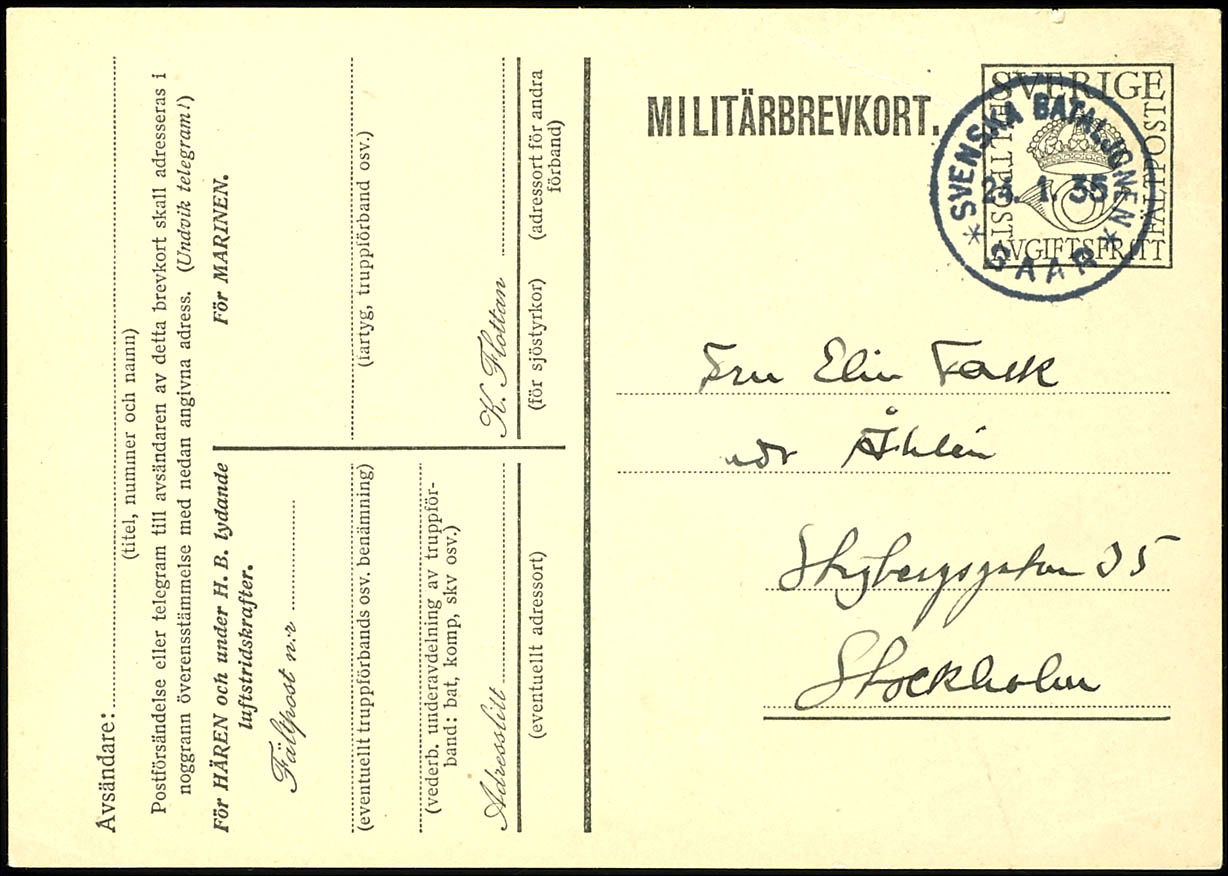 Avsändare:
(titel, nummer och namn)
Postförsändelse eller telegram till avsändaren av detta brevkort skall adresseras i
noggrann överensstämmelse med nedan angivna adress. (Undvik telegram!)
För HÄREN och under H. B. lydande
luftstridskrafter.
Fältpost n:r
(eventuellt truppförbands osv. benämning)
(vederb. underavdelning av truppför-
band: bat, komp, skv osv.)
Adresslitt
(eventuellt adressort)
För MARINEN.
(fartyg, truppförband osv.)
K. Flottan
(för sjöstyrkor)
(adressort för andra
förband)
MILITÄRBREVKORT.
SVERIGE
FÄLTPOST
FÄLTPOST
AVGIFTSFRITT
SVENSKA BATALJONEN
1. 35
* SAAR *
Fru Elin Falk
Åhlén
35
Stockholm